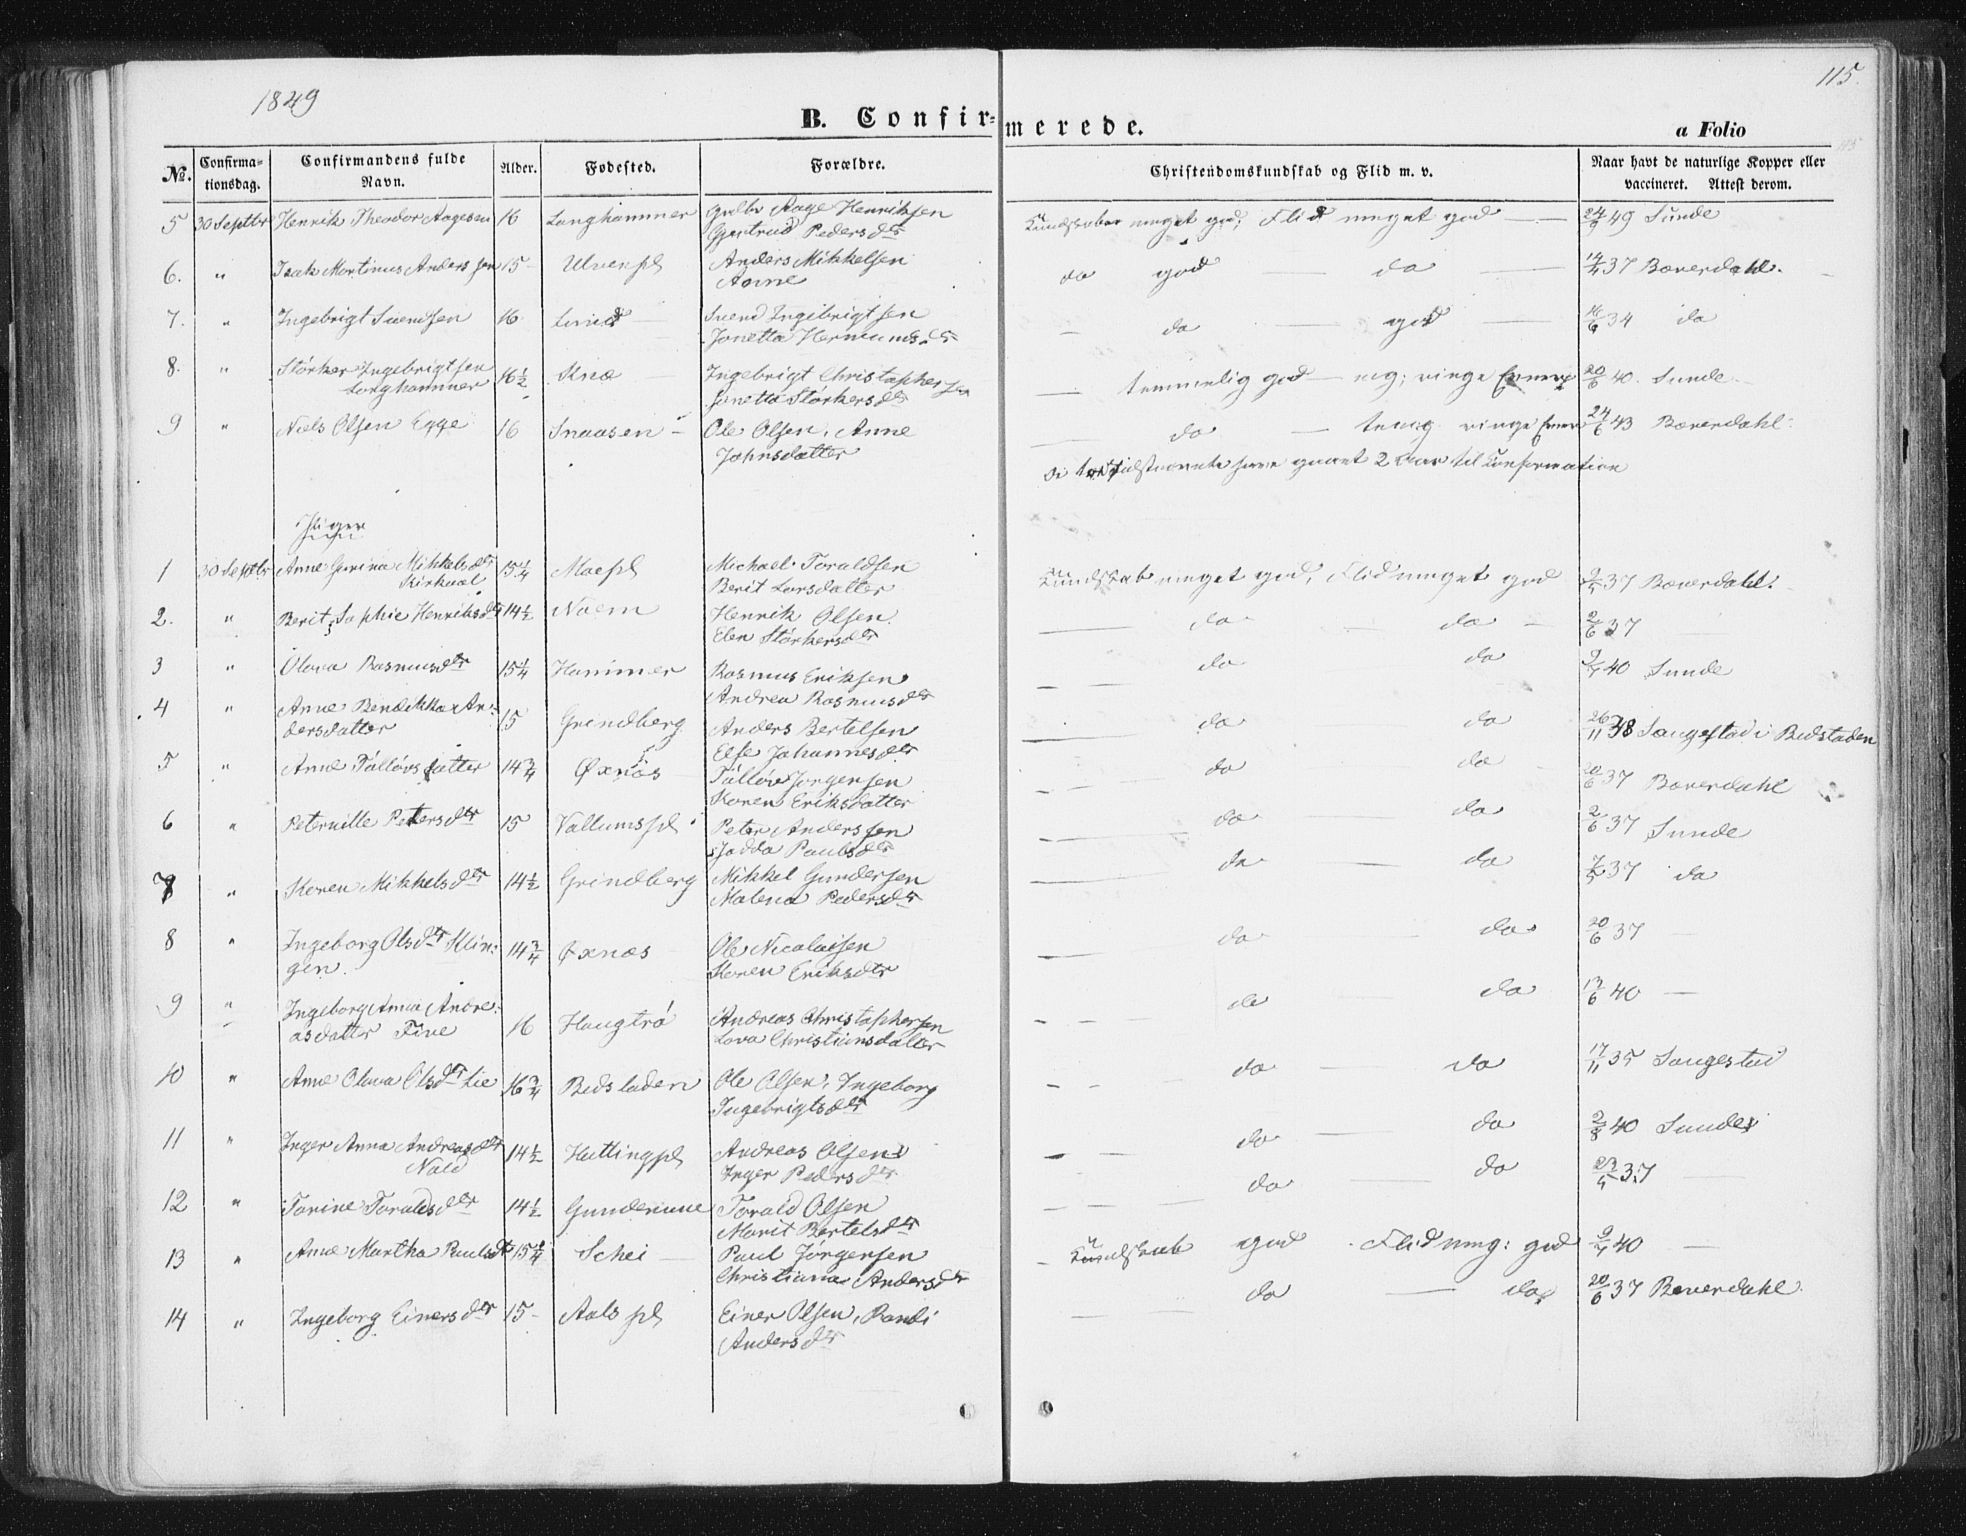 1849
115.
B. Confir-
merede.
a Folio
No.
Confirma-
tionsdag.
Confirmandens fulde
Navn.
Alder.
Fødested.
Forældre.
Christendomskundskab og Flid m. v.
Naar havt de naturlige Kopper eller
vaccineret. Attest derom.
5 30 Septbr Henrik Theodor Aagesen 16 Langhammer Aage Henriksen
Gjertrud Pedersdtr
Kundskaber meget god; Flid meget god 24/9 49 Sunde
6. " Isak Martinus Anderssen 15 Anders Mikkelsen
Anne
do god do 37 Bæverdahl.
7. " Ingebrigt Svendsen 16 Lund Svend Ingebrigtsen
Jonetta
do god 16/6 34 do
8. " Størker Ingebrigtsen
Langhammer
16½ Ingebrigt Christophersen
Jonetta Størkersdtr
temmelig god mg; ringe Evner 20/6 40. Sunde
9 " Niels Olsen Egge 16 Snaasen Ole Olsen, Anne
Johnsdatter
do ringe Evner 24/6 43 Bæverdahl
have gaaet 2 Aar til Confirmation
Piger
1 30 Septbr Anne Mikkelsdtr
15¼ Moepl Michael Toraldsen
Berit Larsdatter
Kundskab meget god, Flid meget god 37 Bæverdahl
2. " Berit Sophie Henriksdtr 14½ Naem Henrik Olsen
Elen Størkersdtr
do do 2/6 37
3 " Olava Rasmusdtr 15¼ Hammer Rasmus Eriksen
Andrea Rasmusdtr
do do 40 Sunde
4 " Anne Bendikka An-
dersdatter
15 Grindberg Anders Bertelsen
Else Johannesdtr
do do 26/11 38 Saugestad i Bedstaden
5 " Anne Tølløvsdatter 14¾ Øxnæs Tølløv Jørgensen
Karen Eriksdatter
do do 20/6 37 Bæverdahl
6 " Peternille Petersdtr 15 Vallumspl Peter Anderssen
Paulsdtr
do do 2/6 37 Sunde
7 " Karen Mikkelsdtr 14½ Grindberg Mikkel Gundersen
Malena Pedersdtr
do do 37 do
8 " Ingeborg Olsdtr Klin-
gen.
14¾ Øxnæs Ole Nicolaisen
Karen Eriksdtr
do do 20/6 37
9 " Ingeborg Anna Andre-
asdatter Five
16 Haugtrø Andreas Christophersen
Lova Christiansdatter
do do 40
10 " Anne Olava Olsdtr Lie 16¾ Bedstaden Ole Olsen, Ingeborg
Ingebrigtsdtr
do do 17/11 35 Saugestad
11 " Inger Anna Andreasdtr
14½ Hattingpl Andreas Olsen
Inger Pedersdtr
do do 2/8 40 Sunde
12 " Torine Toraldsdtr 14½ Torald Olsen
Marit Bertelsdtr
do do 37
13 " Anne Martha Paulsdtr 15¼ Schei Paul Jørgensen
Christiana Andersdtr
Kundskab god Flid meg: god 40
14 " Ingeborg Einersdtr 15 Aalspl Einer Olsen, Randi
Andersdtr
do do 20/6 37 Beverdahl.